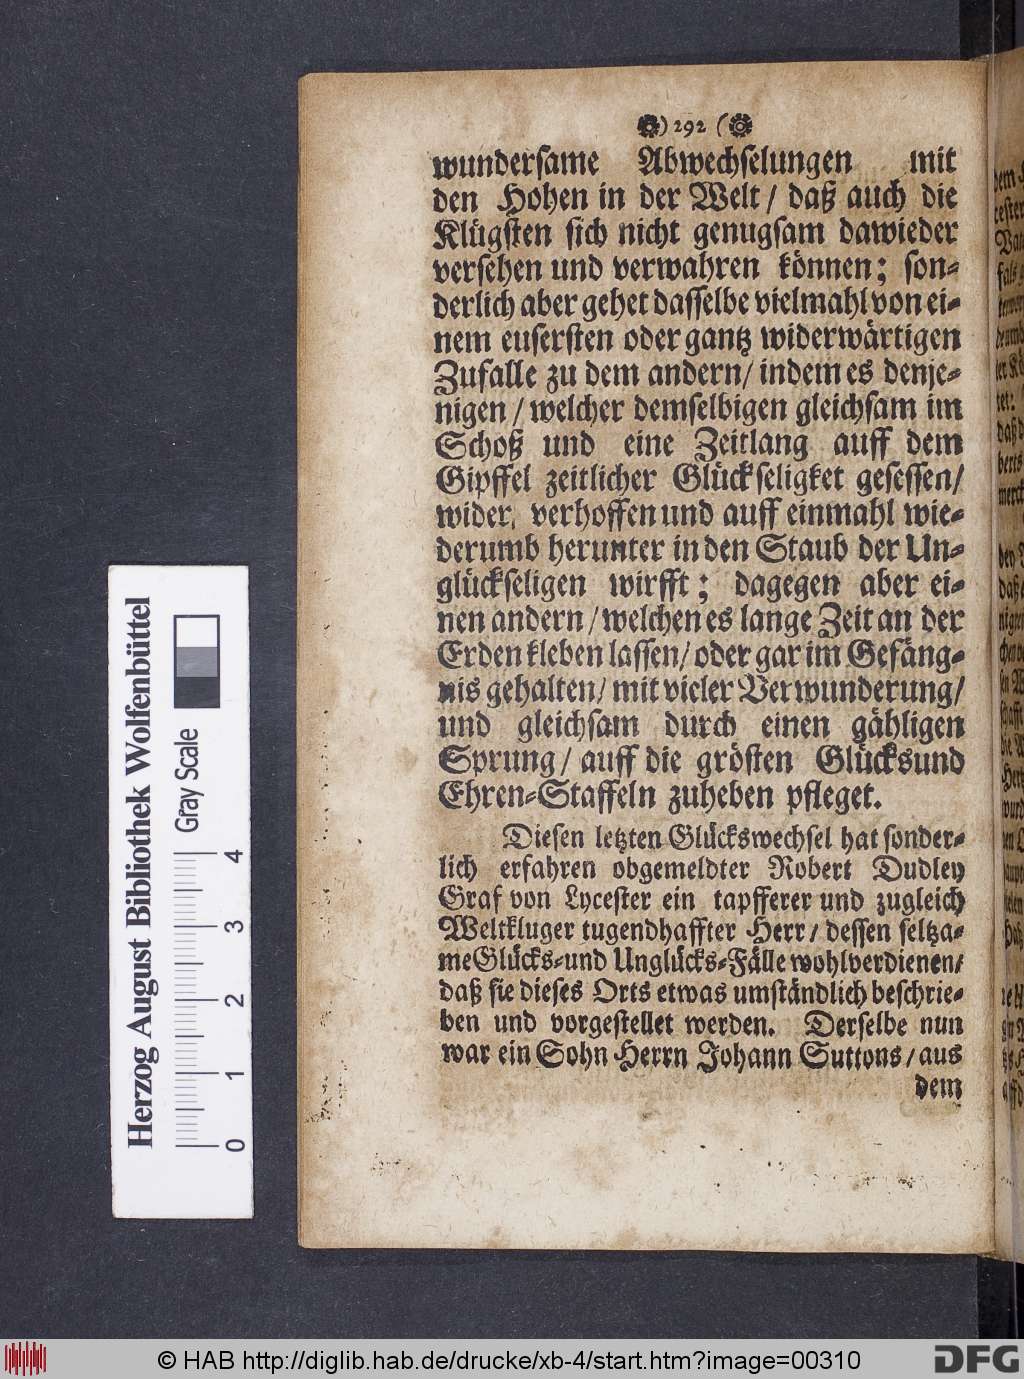 ) 292 (
wundersame Abwechselungen mit
den Hohen in der Welt / daß auch die
Klügsten sich nicht genugsam dawieder
versehen und verwahren können; son-
derlich aber gehet dasselbe vielmahl von ei-
nem eusersten oder gantz widerwärtigen
Zufalle zu dem andern / indem es denje-
nigen / welcher demselbigen gleichsam im
Schoß und eine Zeitlang auff dem
Gipffel zeitlicher Glückseligket gesessen /
wider verhoffen und auff einmahl wie-
derumb herunter in den Staub der Un-
glückseligen wirfft; dagegen aber ei-
nen andern / welchen es lange Zeit an der
Erden kleben lassen / oder gar im Gefäng-
nis gehalten / mit vieler Verwunderung /
und gleichsam durch einen gähligen
Sprung / auff die grösten Glücksund
Ehren-Staffeln zuheben pfleget.
Diesen letzten Glückswechsel hat sonder-
lich erfahren obgemeldter Robert Dudley
Graf von Lycester ein tapfferer und zugleich
Weltkluger tugendhaffter Herr / dessen seltza-
me Glücks-und Unglücks-Fälle wohlverdienen /
daß sie dieses Orts etwas umständlich beschrie-
ben und vorgestellet werden. Derselbe nun
war ein Sohn Herrn Johann Suttons / aus
dem
Herzog August Bibliothek Wolfenbüttel
Gray Scale
0 1 2 3 4
© HAB http://diglib.hab.de/drucke/xb-4/start.htm?image=00310
DFG